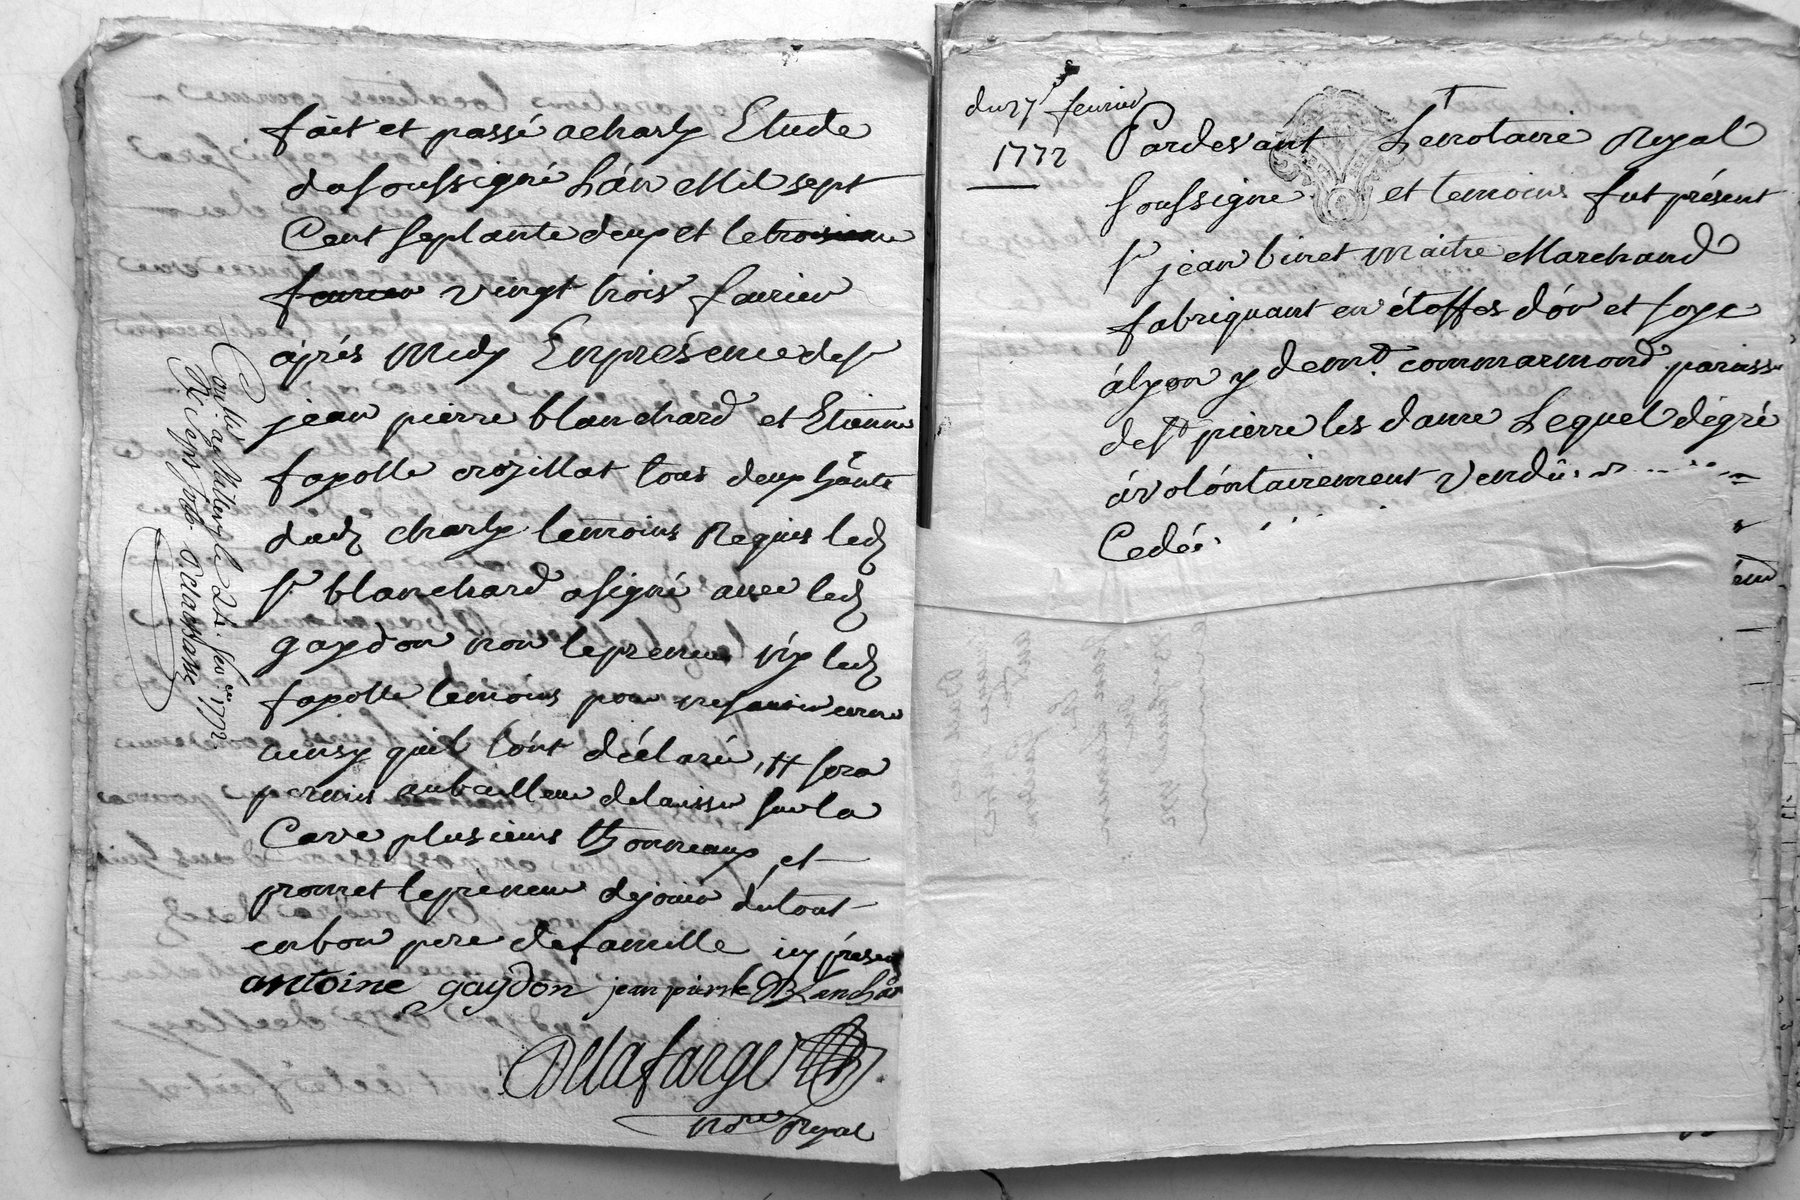 fait et passé a charly Etude
du soussigné L'an Mil sept
Cent septante deux et le troisieme
feurier vingt trois feurier
áprés Midy En présence de sr
jean pierre blanchard et Etienne
fayolle crozillat tous deux hánts
dud charly temoins Requis led
sr blanchard a signé avec led
gaydon non le preneur ny led
fayolle temoins pour ne sauoir
ainsy quil lónt déclaré, sera
permis au bailleur de laisser sur la
Cave plusieurs thonneaux et
promet le préneur de jouir du tout
en bon pere de famille icy présent
antoine gaydon jean pierre Blanchar
Dellafarge
nore Royal
Con.lé
le 24 feu.er 1772
du 27 feurier
1772
Pardevant Le notaire Royal
soussigné et temoins fut présent
sr jean binet Maitre Marchand
fabriquant en étoffes d'ór et soye
á lyon y demt. commarmond paroisse
de st pierre les dame Lequel dégré
á volóntairement Vendû
Cedéé